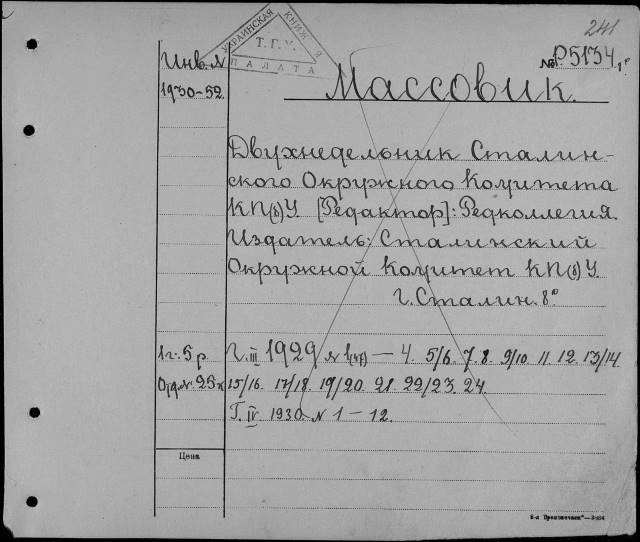 241
УКРАИНСКАЯ КНИЖНАЯ ПАЛАТА
Т.Г.У.
Инв. №
1930-52.
№ Р5134
Массовик.
Двухнедельник Сталин-
ского Окружного Комитета
КП(б)У. [Редактор]: Редколлегия.
Издатель: Сталинский
Окружной Комитет КП(б)У.
г. Сталин. 8°
1 г. 5 р.
Г. III 1929 № 1(47) — 4. 5/6. 7. 8. 9/10. 11. 12. 13/14.
Отд. №. 25к
15/16. 17/18. 19/20. 21. 22/23. 24.
Г. IV 1930. № 1—12.
Цена